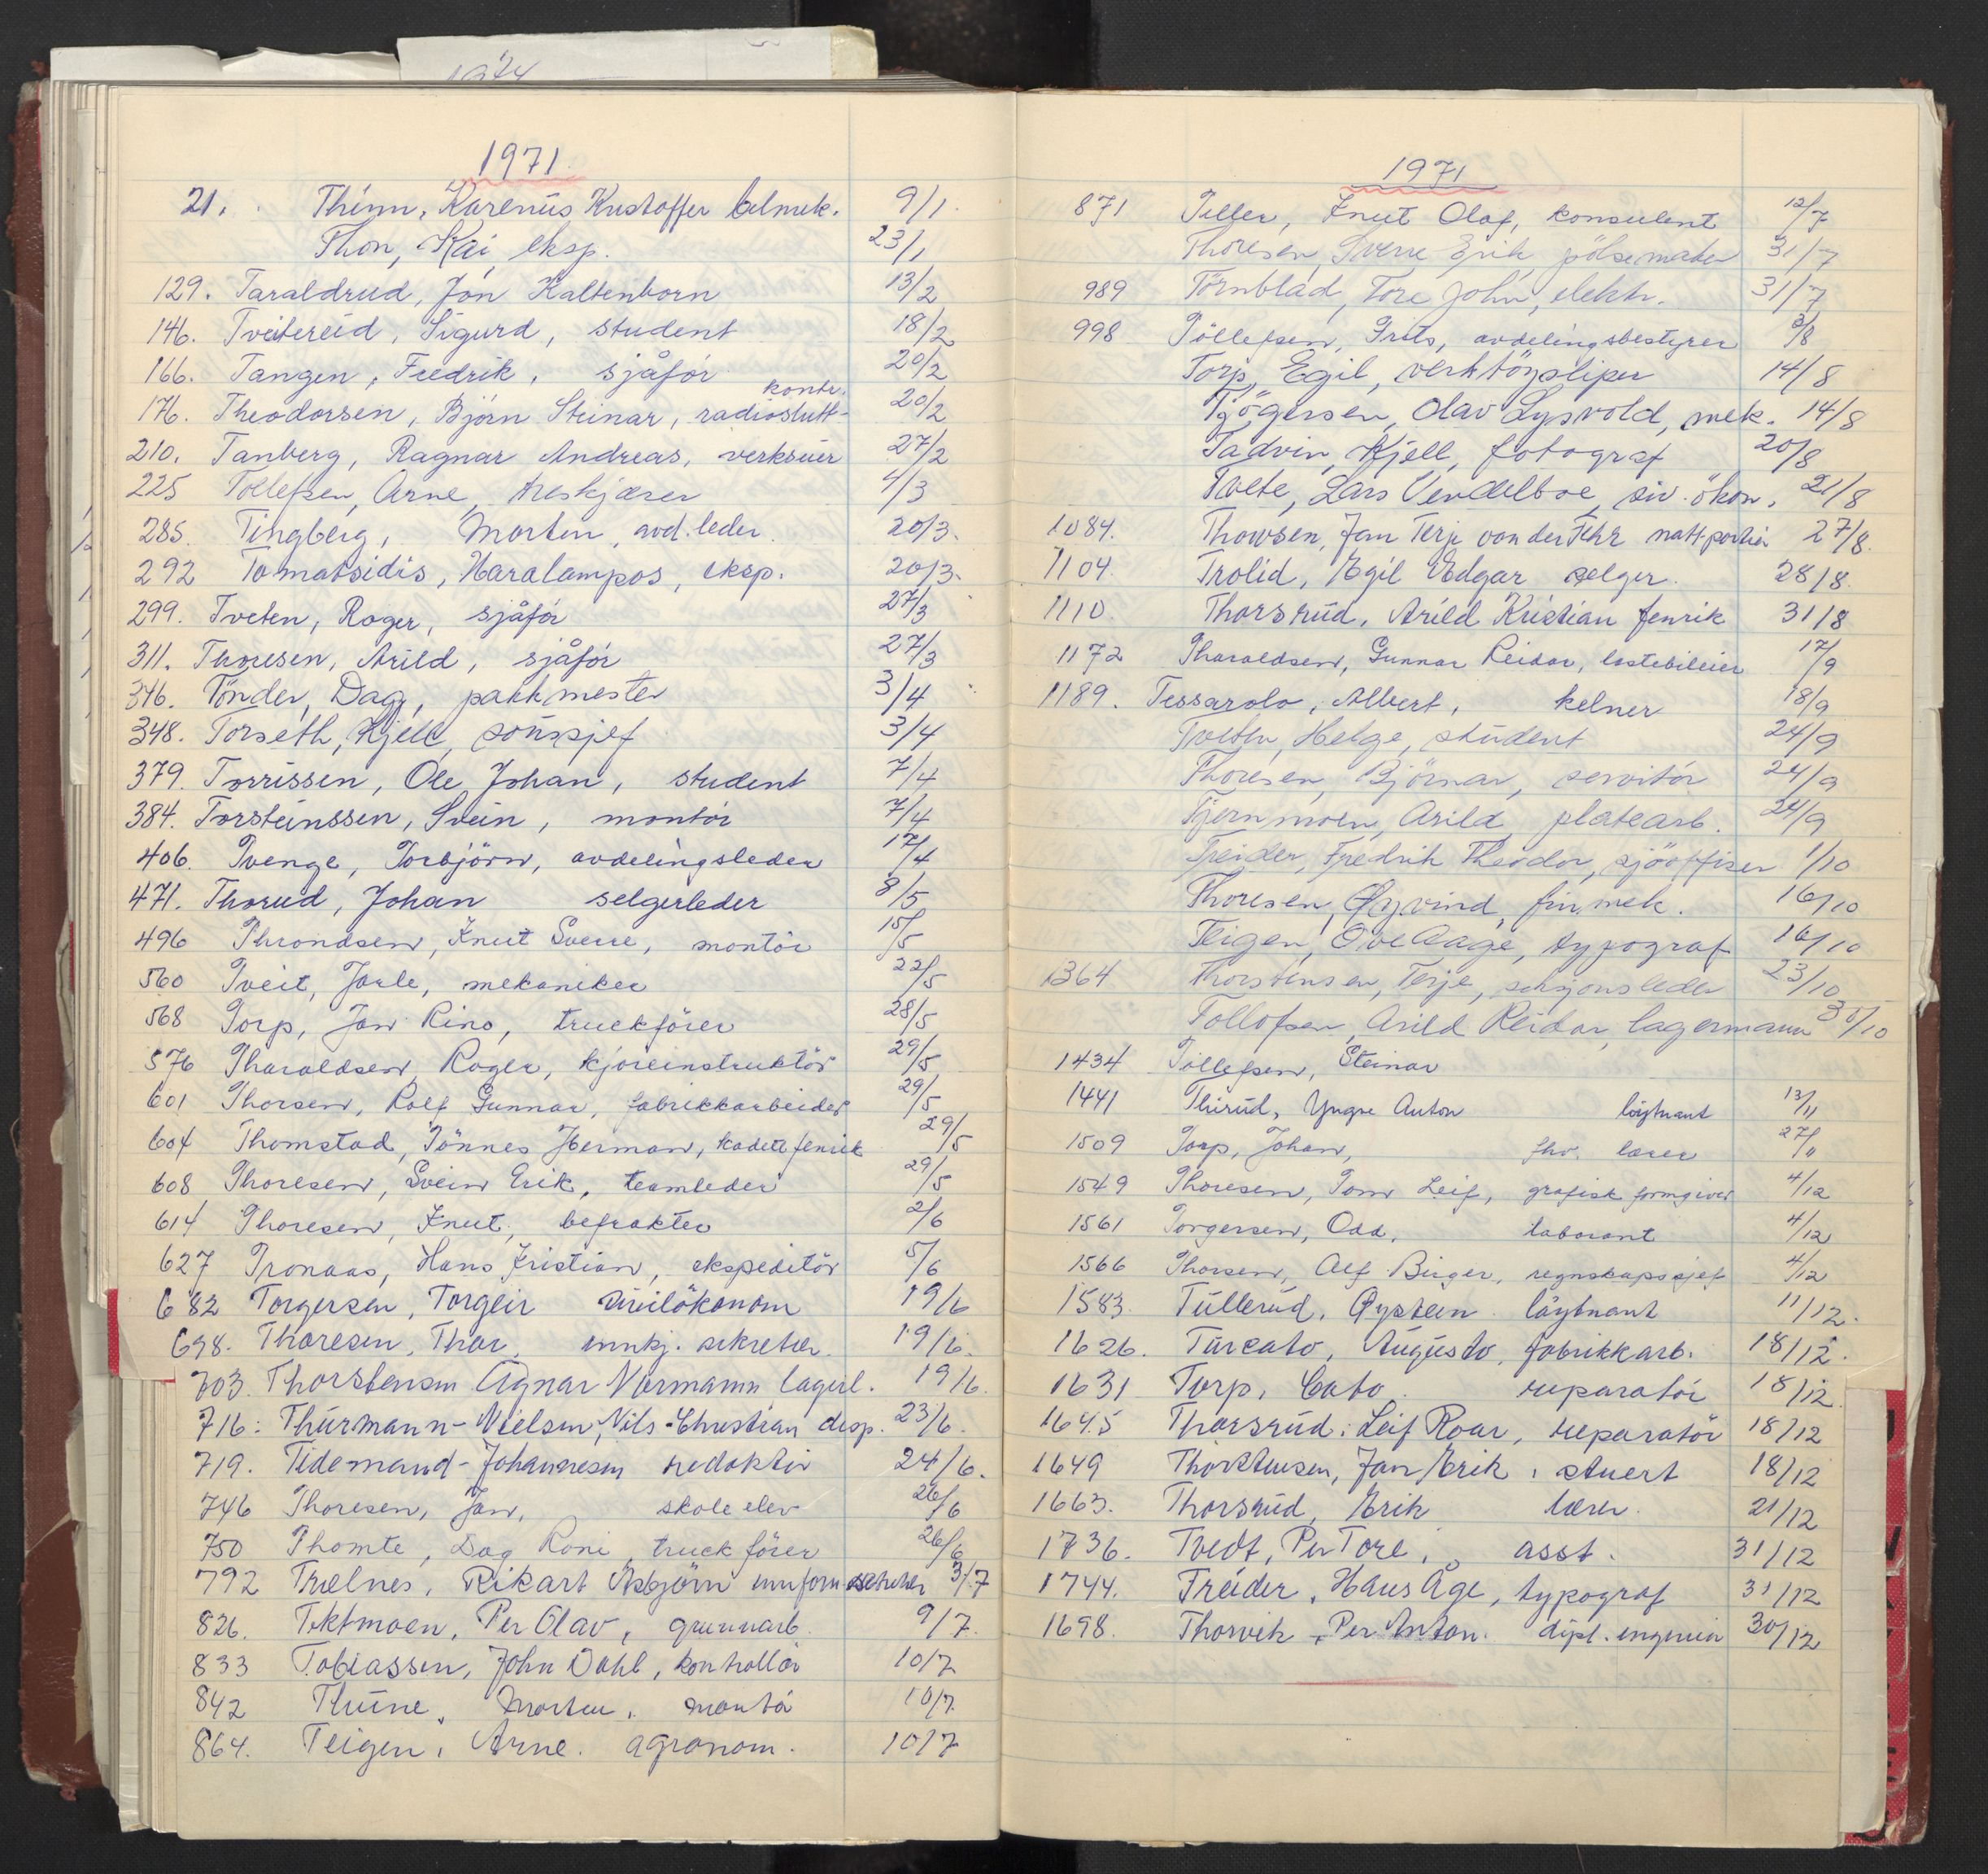 1974
1971
21. Thinn, Karenus Kristoffer bilmek. 9/1
Thon, Kai, eksp. 23/1
129. Taraldrud, Jon Kaltenborn 13/2
146. Tveitereid, Sigurd, student 18/2
166. Tangen, Fredrik, sjåfør 20/2
kontr.
176. Theodorsen, Björn Steinar, radioslutt- 20/2
210. Tanberg, Ragnar Andreas, verkseier 27/2
225 Tollefsen, Arne, 4/3
285. Tingberg, Morten, avd. leder. 20/3.
292 Tomatsidis, Haralampos, eksp. 20/3.
299. Tveten, Roger, sjåfør 27/3
311. Thoresen, Arild, sjåför 27/3
346. Tönder, Dag, pakkmester 3/4
348. Torseth, Kjell, 3/4
379. Torrissen, Ole Johan, student 7/4
384. Torsteinssen, Svein, montör 7/4
406. Tvenge, Torbjörn, avdelingsleder 17/4
471. Thorud, Johan selgerleder 8/5
496 Throndsen, Knut Sverre, montör 15/5
560 Tveit, Jarle, mekaniker 22/5
568 Torp, Jan Rino, truckförer 28/5
576 Tharaldsen, Roger, kjöreinstruktör 29/5
601 Thorsen, Rolf Gunnar, fabrikkarbeider 29/5
604 Thomstad, Tönnes Herman, kadett fenrik 29/5
608 Thoresen, Svein Erik, teamleder 29/5
614 Thoresen, Knut, befrakter 2/6
627 Tronaas, Hans Kristian, ekspeditör 5/6
682 Torgersen, Torgeir siviløkonom 19/6
698. Thoresen, Thor, innkj. sekretær. 19/6.
703. Thorstensen Agnar Normann lagerl. 19/6.
716: Thürmann-Nielsen, Nils-Christian disp. 23/6.
719. Tidemand-Johannesen redaktör 24/6.
746 Thoresen, Jan, skoleelev 26/6
750 Thomte, Dag Roni truckförer 26/6
792 Trælnes, Rikart Asbjörn 3/7
826. Tektmoen, Per Olav, grunnarb. 9/7.
833 Tobiassen, John Dahl, kontrollör 10/7
842 Thune, Morten, montör 10/7.
864. Teigen, Arne. agronom. 10/7
1971
871 Tiller, Knut Olaf, konsulent 12/7
Thoresen, Sverre Erik, pölsemaker 31/7
989 Törnblad, Tore John, elektr. 31/7
998 Töllefsen, Frits, avdelingsbestyrer 3/8
Torp, Egil, verktöysliper 14/8
Tjögersen, Olav Lysvold, mek. 14/8
Tadvin, Kjell, fotograf 20/8
Tvete, Lars Vendelboe, siv. ökon. 21/8
1084. Thowsen, Jan Terje von der Fehr nattportier 27/8.
1104. Trolid, Egil Edgar selger. 28/8.
1110. Thorsrud, Arild Kristian fenrik 31/8
1172 Tharaldsen, Gunnar Reidar, lastebileier 17/9
1189. Tessarolo, Albert, kelner 18/9
Tveten, Helge, student 24/9
Thoresen, Björnar, servitör 24/9
Tjernmoen, Arild, platearb. 24/9
Treider, Fredrik Theodor, sjöoffiser 1/10
Thoresen, Øyvind, fin.mek. 16/10
Teigen, Ove Aage, typograf 16/10
1364 Thorstensen, Terje, seksjonsleder 23/10
Tollofsen, Arild Reidar, lagermann 30/10
1434 Tollefsen, Steinar
1441 Thirud, Yngve Anton löytnant 13/11
1509 Torp, Johan, fhv. lærer 27/11
1549 Thoresen, Tom Leif, grafisk formgiver 4/12
1561 Torgersen, Odd, laborant 4/12
1566 Thorsen, Alf Birger, regnskapssjef 4/12
1583. Tüllerud, Øystein löytnant 11/12.
1626. Turcato, Augusto, fabrikkarb. 18/12.
1631 Torp, Cato. reparatör 18/12.
1645 Thorsrud, Leif Roar, reparatör 18/12
1649 Thorstensen, Jan Erik, stuert 18/12
1663. Thorsrud, Erik lærer. 21/12
1736. Tvedt, Per Tore, asst. 31/12
1744. Treider, Hans Åge, typograf 31/12
1698. Thorvik, Per Anton. dipl. ingeniör 30/12